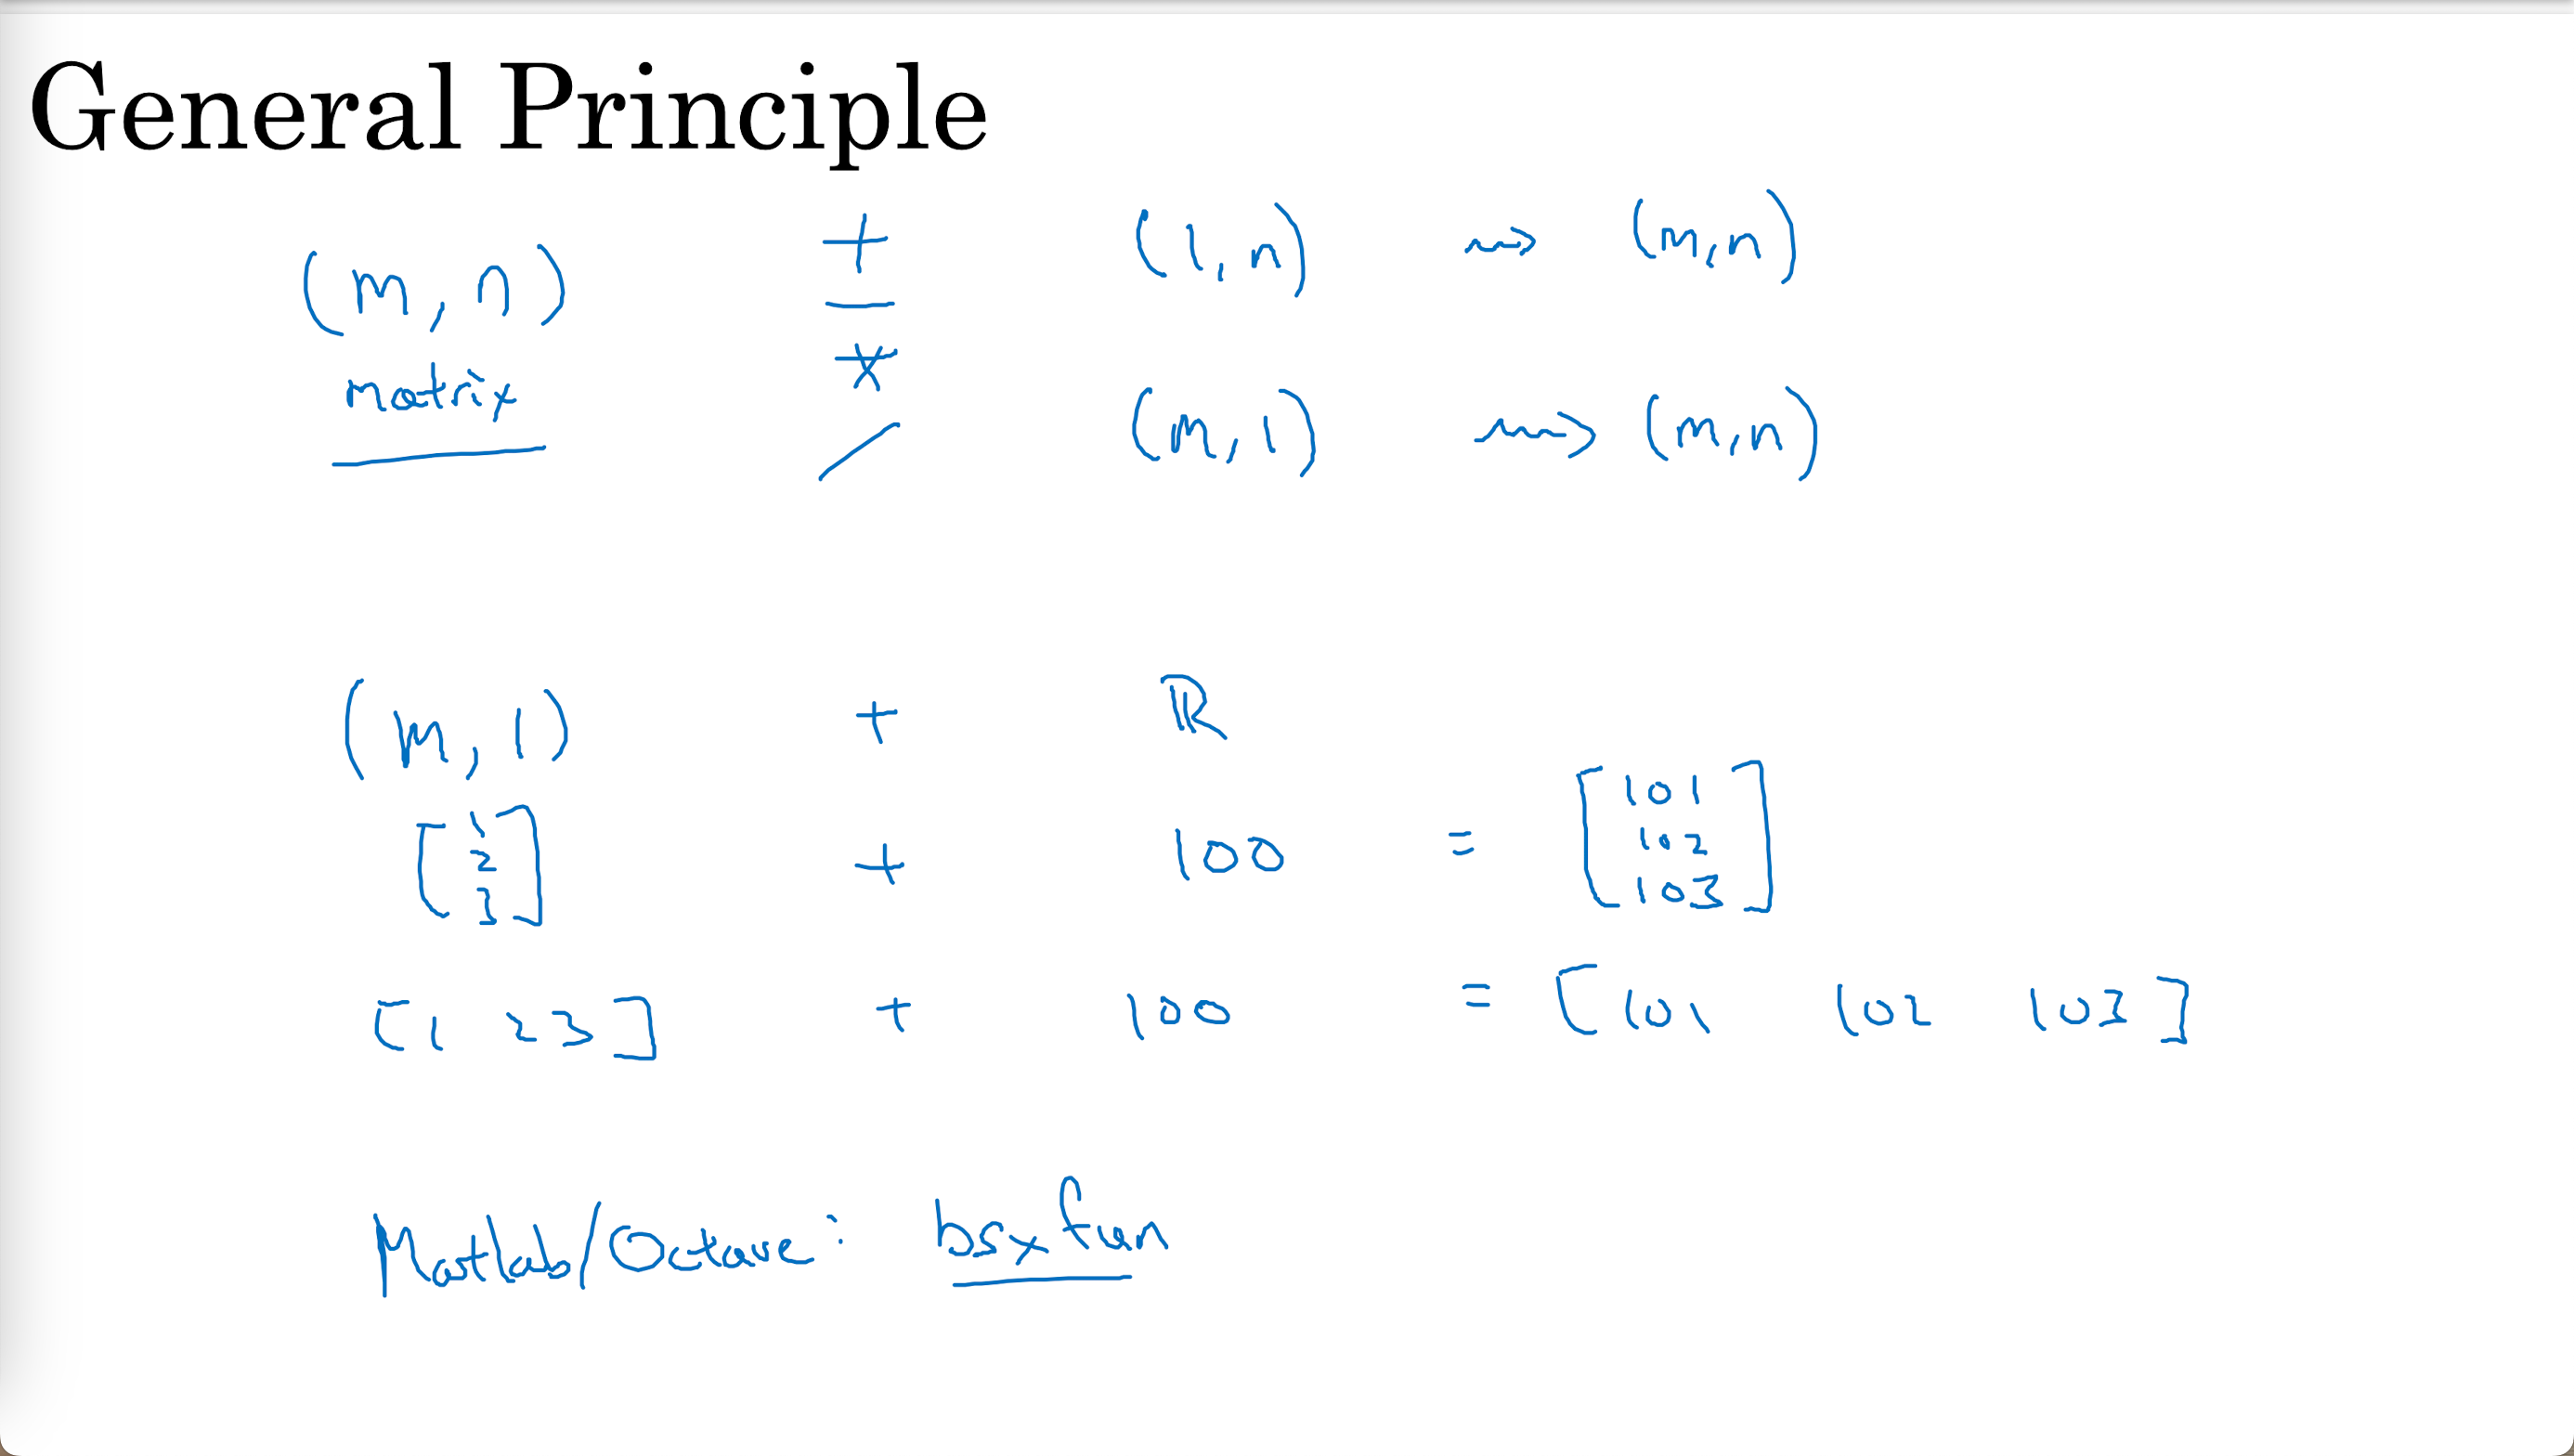 General Principle
(m, n) + (1, n) ⇝ (m, n)
matrix −
*
/ (m, 1) ⇝ (m, n)
(m, 1) + ℝ
[1 2 3] + 100 = [101 102 103]
[1 2 3] + 100 = [101 102 103]
Matlab/Octave: bsxfun